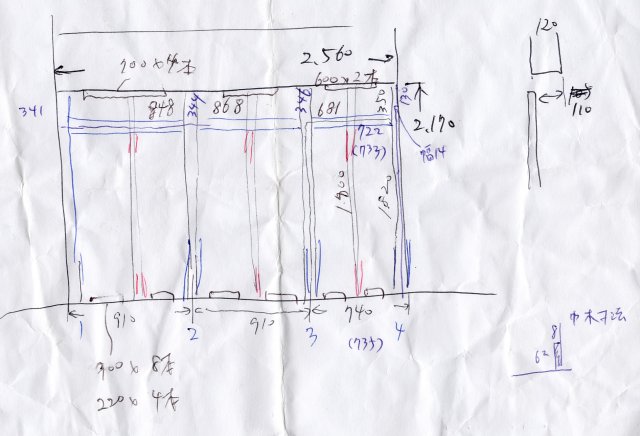 2.560
900×4本
600×2本
341
848
344
868
346
681
350
130
2.170
722
(735)
幅14
1.800
1.820
120
110
910
910
740
1
2
3
4
(735)
300×8本
220×4本
巾木寸法
8
62